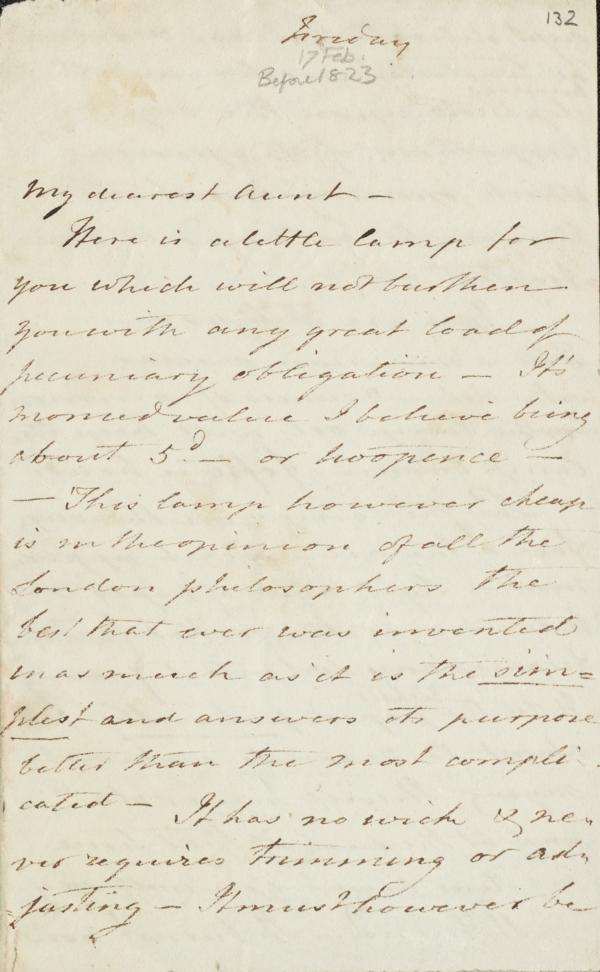 132
Friday
17 Feb.
Before 1823
My dearest Aunt –
Here is a little lamp for
you which will not burthen
you with any great load of
pecuniary obligation – It's
monied value I believe being
about 5d – or twopence –
– This lamp however cheap
is in the opinion of all the
London philosophers the
best that ever was invented
in as much as it is the sim=
plest and answers its purpose
better than the most compli-
cated – It has no wick & ne-
ver requires trimming or ad-
justing – It must however be